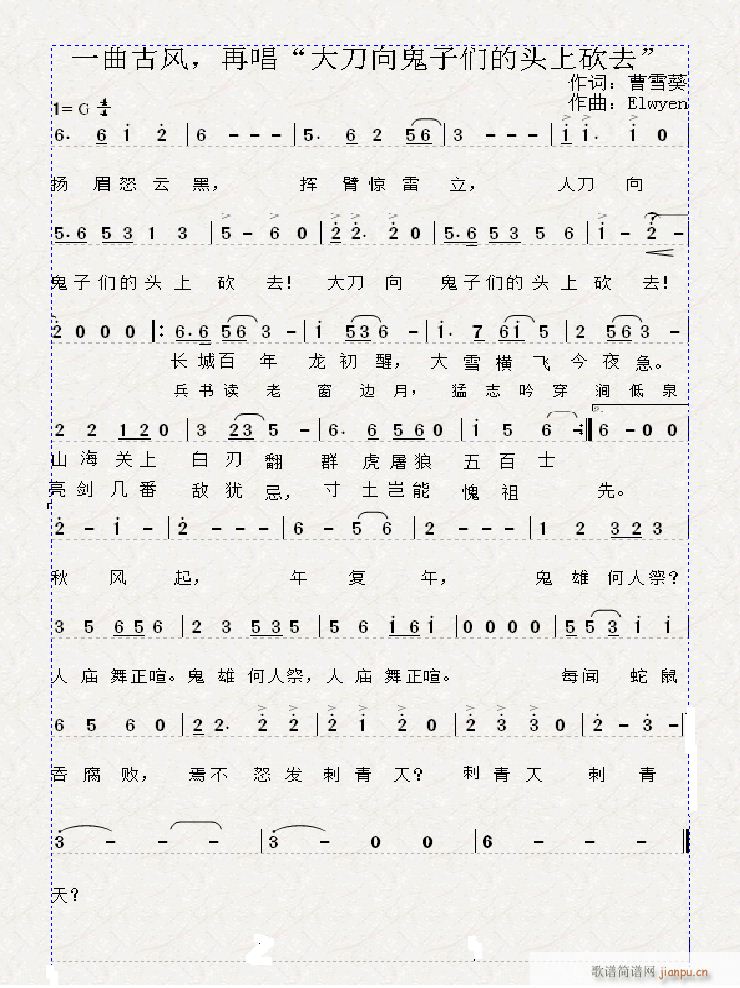 一曲古风，再唱“大刀向鬼子们的头上砍去”
作词：曹雪葵
作曲：Elwyen
1= G 4/4
6· 6 i 2 | 6 - - - | 5· 6 2 56 | 3 - - - | i i· i 0
扬 眉怒 云 黑， 挥 臂惊 雷 立， 大刀 向
5·6 53 1 3 | 5 - 6 0 | 2 2· 2 0 | 5·6 53 5 6 | i - 2 -
鬼子们的头上 砍 去! 大刀 向 鬼子们的头上砍 去!
2 0 0 0 |: 6·6 56 3 - | i 536 - | i· 7 6i 5 | 2 563 -
长城百 年 龙初醒， 大 雪 横 飞 今 夜 急。
兵书读 老 窗 边月， 猛 志 吟 穿 涧 低 泉
2 2 120 | 3 23 5 - | 6· 6 5 6 0 | i 5 6 - :| 2. 6 - 0 0
山 海 关上 白 刃 翻 群 虎屠狼 五 百 士
亮 剑 几番 敌 犹 忌， 寸 土岂能 愧 祖 先。
2 - i - | 2 - - - | 6 - 5 6 | 2 - - - | 1 2 323
秋 风 起， 年 复 年， 鬼 雄 何人祭?
3 5 656 | 2 3 535 | 5 6 i6i | 0 0 0 0 | 553 i i
人 庙 舞正喧。鬼 雄 何人祭，人 庙 舞正喧。 每闻 蛇 鼠
6 5 6 0 | 2 2· 2 2 | 2 i 2 0 | 2 3 3 0 | 2 - 3 -
吞 腐 败， 焉不 怒 发 刺 青 天? 刺 青 天 刺 青
3 - - - | 3 - 0 0 | 6 - - -
天?
歌谱简谱网 jianpu.cn